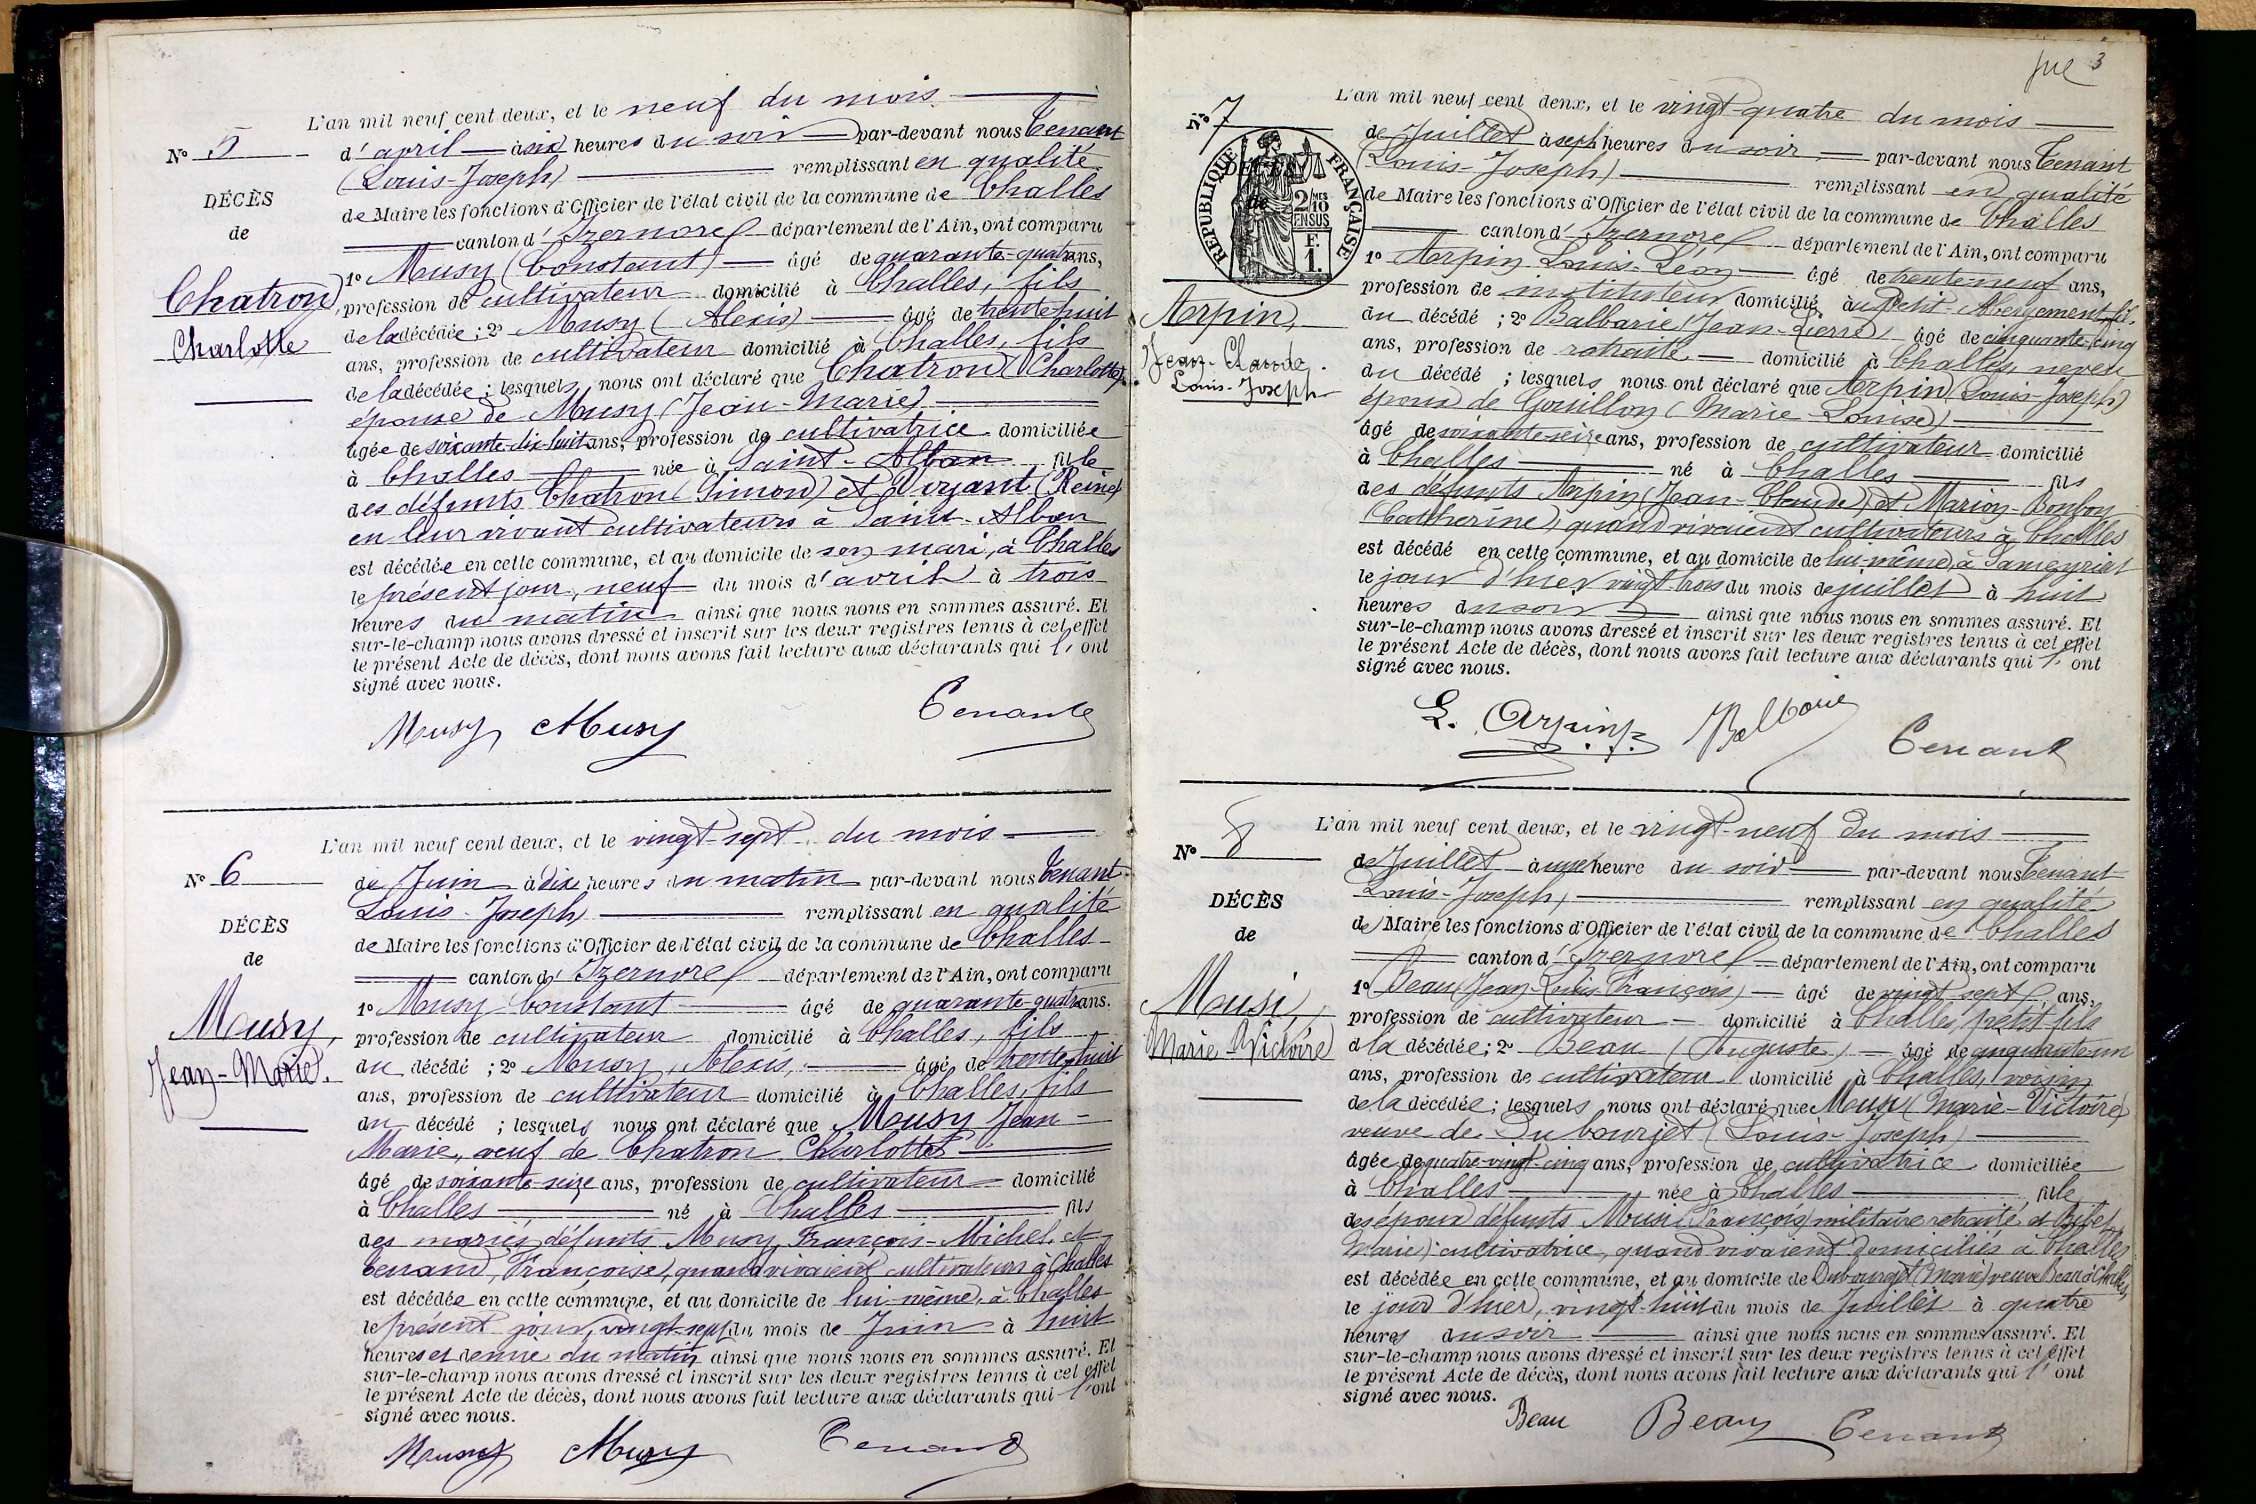 L'an mil neuf cent deux, et le neuf du mois
N° 5
d'avril à six heures du soir par-devant nous Tenant
(Louis-Joseph) remplissant en qualité
DÉCÈS
de Maire les fonctions d'Officier de l'état civil de la commune de Challes
de
canton d'Izernore département de l'Ain, ont comparu
1° Musy (Constant) âgé de quarante-quatre ans,
Chatron,
profession de cultivateur domicilié à Challes, fils
Charlotte
de la décédée; 2° Musy (Alexis) âgé de trente huit
ans, profession de cultivateur domicilié à Challes, fils
de la décédée; lesquels nous ont déclaré que Chatron (Charlotte)
épouse de Musy (Jean-Marie)
âgée de soixante-dix huit ans, profession de cultivatrice domiciliée
à Challes née à Saint-Alban fille
des défunts Chatron (Simon) et (Reine)
en leur vivant cultivateurs à Saint-Alban
est décédée en cette commune, et au domicile de son mari, à Challes
le présent jour, neuf du mois d'avril à trois
heures du matin ainsi que nous nous en sommes assuré. Et
sur-le-champ nous avons dressé et inscrit sur les deux registres tenus à cet effet
le présent Acte de décès, dont nous avons fait lecture aux déclarants qui l'ont
signé avec nous.
Musy Musy Tenant
L'an mil neuf cent deux, et le vingt-sept du mois
N° 6
de Juin à dix heures du matin par-devant nous Tenant
Louis-Joseph, remplissant en qualité
DÉCÈS
de Maire les fonctions d'Officier de l'état civil de la commune de Challes
de
canton d'Izernore département de l'Ain, ont comparu
1° Musy Constant âgé de quarante-quatre ans.
Musy,
profession de cultivateur domicilié à Challes, fils
Jean-Marie.
du décédé; 2° Musy, Alexis, âgé de trente-huit
ans, profession de cultivateur domicilié à Challes, fils
du décédé; lesquels nous ont déclaré que Musy Jean-
Marie, veuf de Chatron Charlotte
âgé de soixante-seize ans, profession de cultivateur domicilié
à Challes né à Challes fils
des mariés défunts Musy, François-Michel, et
Tenand, Françoise, quand vivaient cultivateurs à Challes
est décédée en cette commune, et au domicile de lui-même, à Challes
le présent jour, vingt-sept du mois de Juin à huit
heures et demie du matin ainsi que nous nous en sommes assuré. Et
sur-le-champ nous avons dressé et inscrit sur les deux registres tenus à cet effet
le présent Acte de décès, dont nous avons fait lecture aux déclarants qui l'ont
signé avec nous.
Musy Musy Tenant
3
L'an mil neuf cent deux, et le vingt-quatre du mois
N° 7
de Juillet à sept heures du soir par-devant nous Tenant
(Louis-Joseph) remplissant en qualité
DÉCÈS
de
RÉPUBLIQUE FRANÇAISE
2/10 MES
EN SUS
F.
1.
de Maire les fonctions d'Officier de l'état civil de la commune de Challes
canton d'Izernore département de l'Ain, ont comparu
1° Arpin Louis-Léon âgé de trente-neuf ans,
profession de instituteur domicilié au Petit-Abergement fils
Arpin,
du décédé; 2° Balbarie (Jean-Pierre) âgé de cinquante-cinq
Jean-Claude
ans, profession de retraité domicilié à Challes neveu
Louis-Joseph
du décédé; lesquels nous ont déclaré que Arpin (Louis-Joseph)
époux de Gouillon (Marie Louise)
âgé de soixante-seize ans, profession de cultivateur domicilié
à Challes né à Challes fils
des défunts Arpin (Jean-Claude) et Marion-Bonbon
(Catherine), quand vivaient cultivateurs à Challes
est décédé en cette commune, et au domicile de lui-même, à
le jour d'hier vingt-trois du mois de juillet à huit
heures du soir ainsi que nous nous en sommes assuré. Et
sur-le-champ nous avons dressé et inscrit sur les deux registres tenus à cet effet
le présent Acte de décès, dont nous avons fait lecture aux déclarants qui l'ont
signé avec nous.
L. Arpin Balbarie Tenant
L'an mil neuf cent deux, et le vingt-neuf du mois
N° 8
de Juillet à une heure du soir par-devant nous Tenant
Louis-Joseph, remplissant en qualité
DÉCÈS
de Maire les fonctions d'Officier de l'état civil de la commune de Challes
de
canton d'Izernore département de l'Ain, ont comparu
1° Beau (Jean-Louis François) âgé de vingt sept ans,
Musi,
profession de cultivateur domicilié à Challes, petit fils
Marie-Victoire
d la décédée; 2° Beau (Auguste) âgé de cinquante un
ans, profession de cultivateur domicilié à Challes, voisin
de la décédée; lesquels nous ont déclaré que Musy (Marie-Victoire)
veuve de Dubourjet (Louis-Joseph)
âgée de quatre-vingt-cinq ans, profession de cultivatrice domiciliée
à Challes née à Challes fille
des époux défunts Musi (François) militaire retraité et
Marie) cultivatrice, quand vivaient domiciliés à Challes
est décédée en cette commune, et au domicile de Dubourget (Marie) veuve Beau à Challes,
le jour d'hier, vingt-huit du mois de Juillet à quatre
heures du soir ainsi que nous nous en sommes assuré. Et
sur-le-champ nous avons dressé et inscrit sur les deux registres tenus à cet effet
le présent Acte de décès, dont nous avons fait lecture aux déclarants qui l'ont
signé avec nous.
Beau Beau Tenant